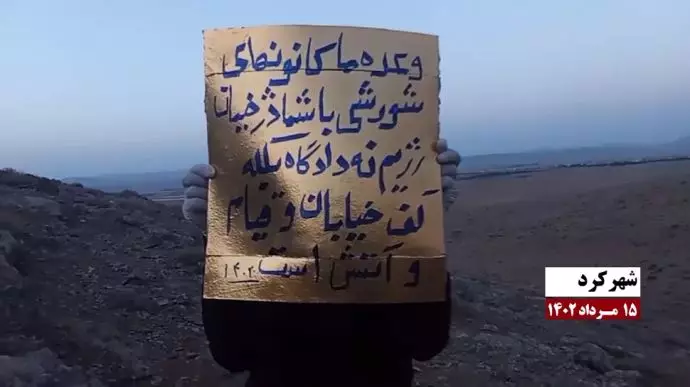 وعده ما کانونهای
شورشی با شما دژخیمان
رژیم نه دادگاه بلکه
کف خیابان و قیام
و آتش است ۱۴۰۲
شهرکرد
۱۵ مرداد ۱۴۰۲